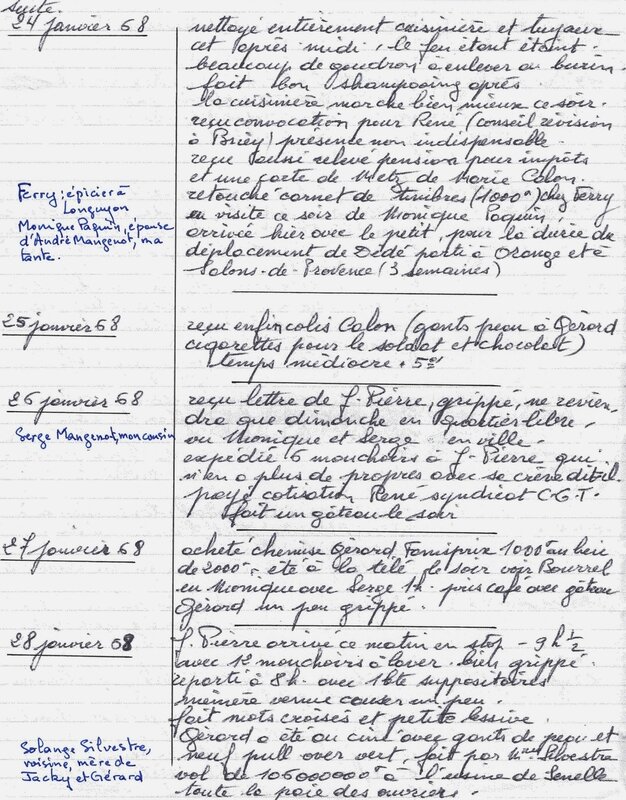 suite.
24 janvier 68
nettoyé entièrement cuisinière et tuyaux
cet après midi, le feu étant éteint.
beaucoup de goudron à enlever au burin.
fait bon shampooing après.
la cuisinière marche bien mieux ce soir.
reçu convocation pour René (conseil révision
à Briey) présence non indispensable.
reçu aussi relevé pension pour impôts
et une carte de Metz de Marie Colon.
retouché carnet de timbres (1000 f) chez Ferry
eu visite ce soir de Monique Paquin,
arrivée hier avec le petit, pour la durée du
déplacement de Dédé parti à Orange et à
Salons-de-Provence (3 semaines)
Ferry : épicier à
Longuyon
Monique Paquin, épouse
d'André Mangenot, ma
tante.
25 janvier 68
reçu enfin colis Colon (gants peau à Gérard
cigarettes pour le soldat et chocolat)
temps médiocre + 5°
26 janvier 68
reçu lettre de J. Pierre, grippé, ne revien-
dra que dimanche en quartier libre.
vu Monique et Serge en ville.
expédié 6 mouchoirs à J. Pierre qui
n'en a plus de propres avec sa crève dit-il.
payé cotisation René syndicat C.G.T.
fait un gâteau le soir
Serge Mangenot, mon cousin
27 janvier 68
acheté chemise Gérard, Famisprix 1000 f au lieu
de 2000 - été à la télé le soir voir Bourrel
eu Monique avec Serge 1h. pris café avec gâteau
Gérard un peu grippé.
28 janvier 68
J. Pierre arrivé ce matin en stop - 9 h 1/2
avec 12 mouchoirs à laver. bien grippé.
reparti à 8h. avec 1 bte suppositoires
mémère venue causer un peu.
fait mots croisés et petite lessive.
Gérard a été au ciné avec gants de peau et
neuf pull over vert, fait par Mme Silvestre
vol de 106000000 f à l'usine de Senelle
toute la paie des ouvriers.
Solange Silvestre,
voisine, mère de
Jacky et Gérard